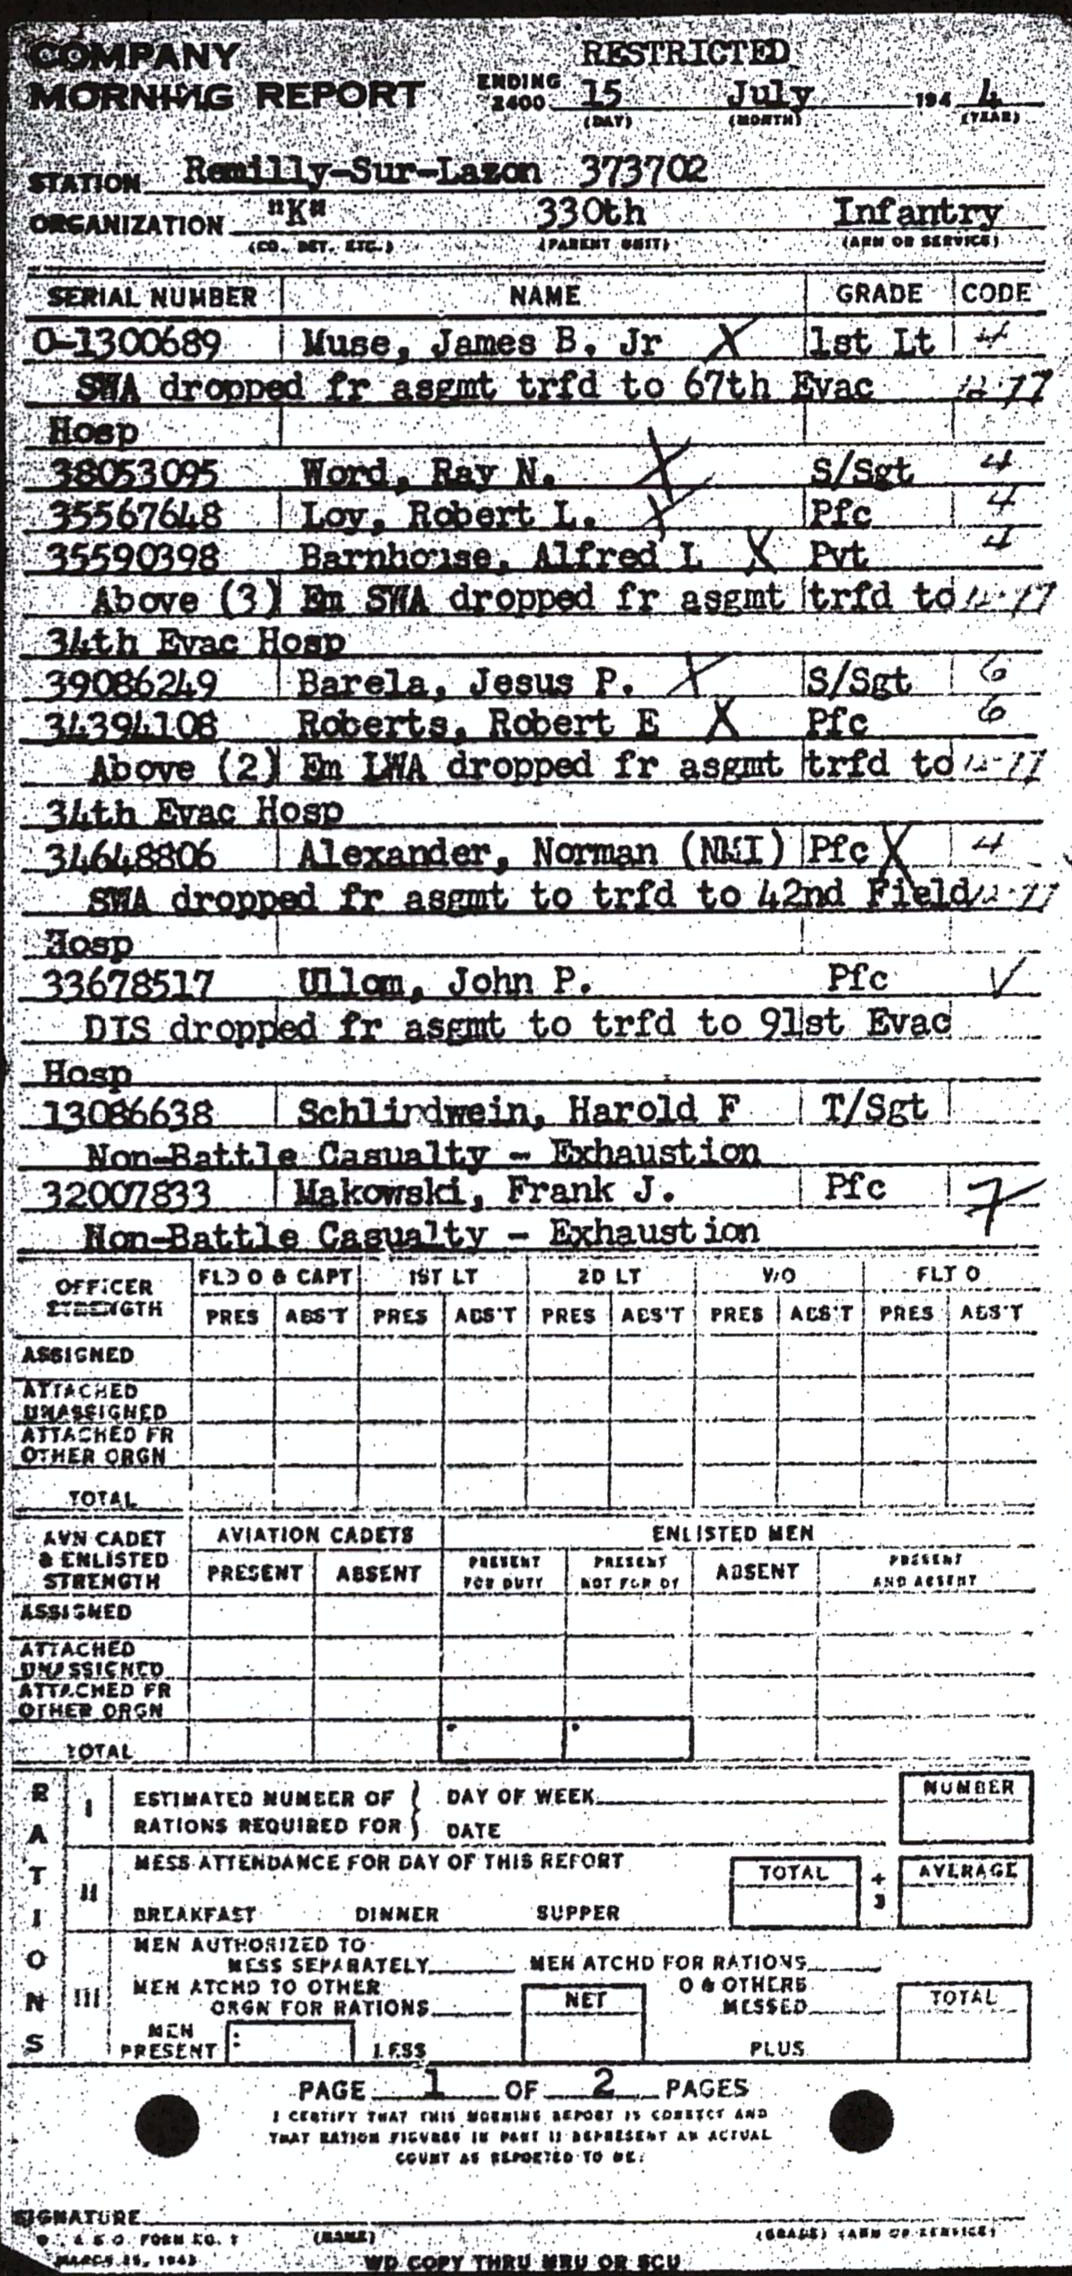 COMPANY RESTRICTED
MORNING REPORT ENDING 2400 15 July 194 4
(DAY) (MONTH) (YEAR)
STATION Remilly-Sur-Lazon 373702
ORGANIZATION "K" 330th Infantry
(CO. DET. ETC.) (PARENT UNIT) (ARM OR SERVICE)
SERIAL NUMBER NAME GRADE CODE
O-1300689 Muse, James B. Jr X 1st Lt 4
SWA dropped fr asgmt trfd to 67th Evac 12-77
Hosp
38053095 Word, Ray N. X S/Sgt 4
35567648 Loy, Robert L. X Pfc 4
35590398 Barnhouse, Alfred L X Pvt 4
Above (3) Em SWA dropped fr asgmt trfd to 12-77
34th Evac Hosp
39086249 Barela, Jesus P. X S/Sgt 6
34394108 Roberts, Robert E X Pfc 6
Above (2) Em LWA dropped fr asgmt trfd to 12-77
34th Evac Hosp
34648806 Alexander, Norman (NMI) Pfc X 4
SWA dropped fr asgmt to trfd to 42nd Field 12-77
Hosp
33678517 Ullom, John P. Pfc ✓
DIS dropped fr asgmt to trfd to 91st Evac
Hosp
13086638 Schlindwein, Harold F T/Sgt
Non-Battle Casualty - Exhaustion
32007833 Makowski, Frank J. Pfc 7
Non-Battle Casualty - Exhaustion
OFFICER STRENGTH FLD O & CAPT 1ST LT 2D LT W/O FLT O
PRES ABS'T PRES ABS'T PRES ABS'T PRES ABS'T PRES ABS'T
ASSIGNED
ATTACHED
UNASSIGNED
ATTACHED FR
OTHER ORGN
TOTAL
AVN CADET & ENLISTED STRENGTH AVIATION CADETS ENLISTED MEN
PRESENT ABSENT PRESENT FOR DUTY PRESENT NOT FOR DY ABSENT PRESENT AND ABSENT
ASSIGNED
ATTACHED
UNASSIGNED
ATTACHED FR
OTHER ORGN
TOTAL
RATIONS
I ESTIMATED NUMBER OF RATIONS REQUIRED FOR } DAY OF WEEK NUMBER
DATE
II MESS ATTENDANCE FOR DAY OF THIS REPORT TOTAL ÷ 3 AVERAGE
BREAKFAST DINNER SUPPER
III MEN AUTHORIZED TO
MESS SEPARATELY MEN ATCHD FOR RATIONS
MEN ATCHD TO OTHER ORGN FOR RATIONS NET O & OTHERS MESSED TOTAL
MEN PRESENT LESS PLUS
PAGE 1 OF 2 PAGES
I CERTIFY THAT THIS MORNING REPORT IS CORRECT AND
THAT RATION FIGURES IN PART II REPRESENT AN ACTUAL
COUNT AS REPORTED TO ME:
SIGNATURE
(NAME) (GRADE) (ARM OR SERVICE)
FORM NO. 1
MARCH 25, 1943
WD COPY THRU MRU OR SCU